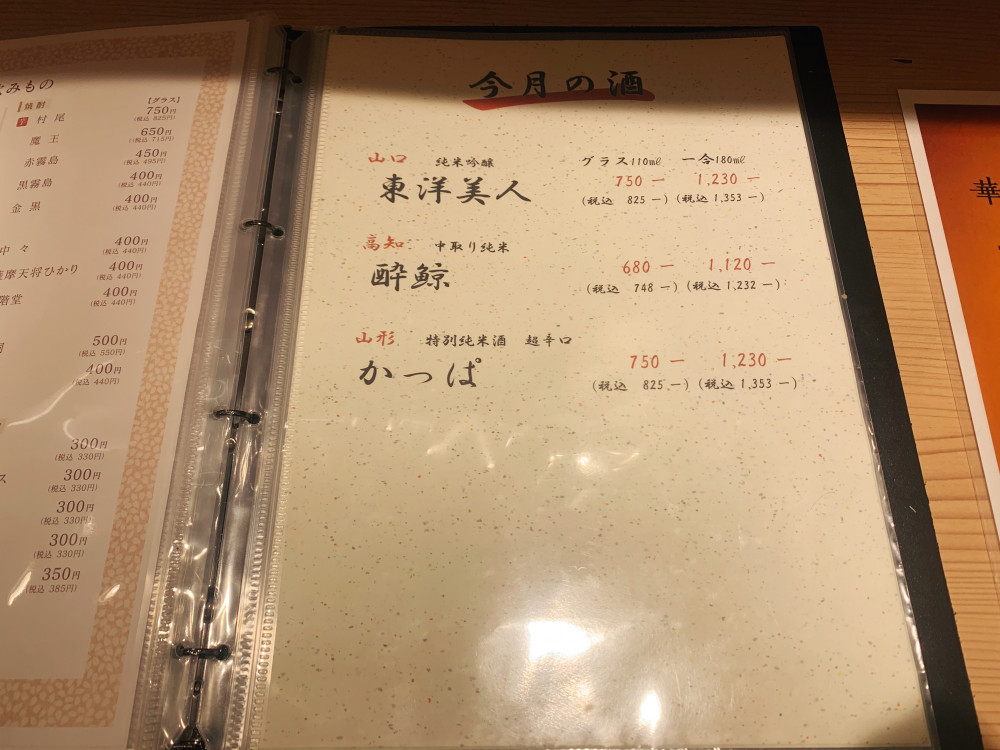 みもの
焼酎
[グラス]
村尾 750円
(税込 825円)
魔王 650円
(税込 715円)
赤霧島 450円
(税込 495円)
黒霧島 400円
(税込 440円)
金黒 400円
(税込 440円)
中々 400円
(税込 440円)
薩摩天将ひかり 400円
(税込 440円)
階堂 400円
(税込 440円)
500円
(税込 550円)
400円
(税込 440円)
300円
(税込 330円)
ス 300円
(税込 330円)
300円
(税込 330円)
300円
(税込 330円)
350円
(税込 385円)
今月の酒
山口 純米吟醸 グラス110㎖ 一合180㎖
東洋美人 750 ー 1,230 ー
(税込 825 ー) (税込 1,353 ー)
高知 中取り純米
酔鯨 680 ー 1,120 ー
(税込 748 ー) (税込 1,232 ー)
山形 特別純米酒 超辛口
かっぱ 750 ー 1,230 ー
(税込 825 ー) (税込 1,353 ー)
華